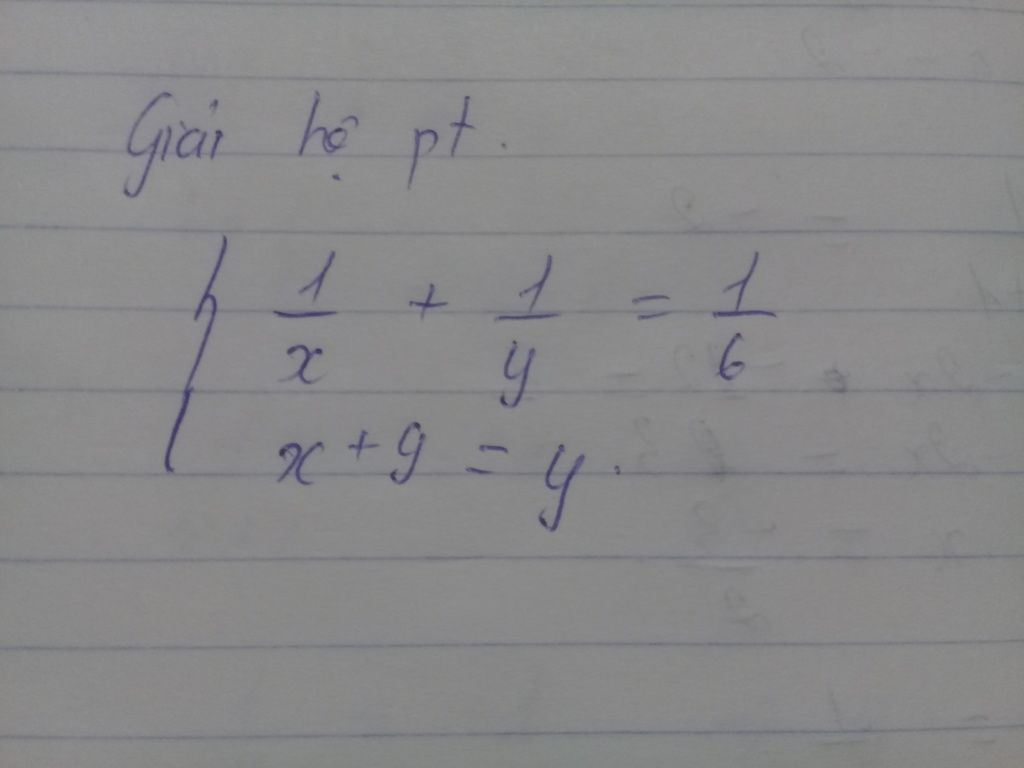 Giải hệ pt.
1/x + 1/y = 1/6
x + 9 = y.